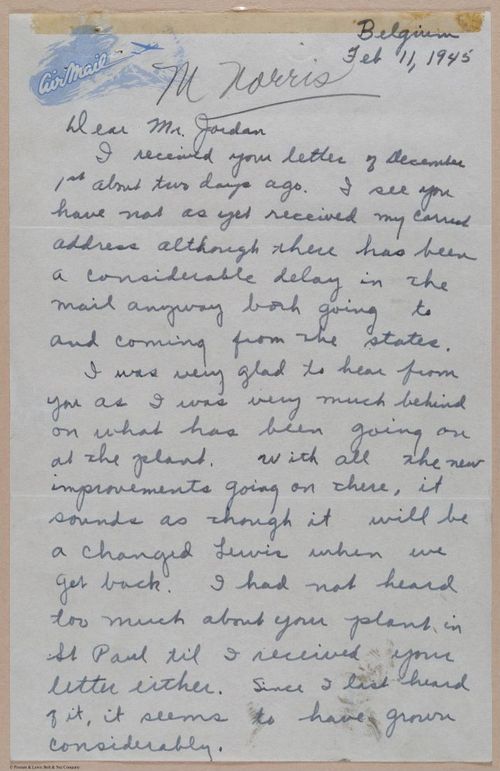 Belgium
Feb 11, 1945
Air Mail
M Norris
Dear Mr. Jordan
I received your letter of December
1st about two days ago. I see you
have not as yet received my correct
address although there has been
a considerable delay in the
mail anyway both going to
and coming from the states.
I was very glad to hear from
you as I was very much behind
on what has been going on
at the plant. With all the new
improvements going on there, it
sounds as though it will be
a changed Lewis when we
get back. I had not heard
too much about your plant in
St Paul til I received your
letter either. Since I last heard
of it, it seems to have grown
considerably.
© Pioneer & Lewis Bolt & Nut Company